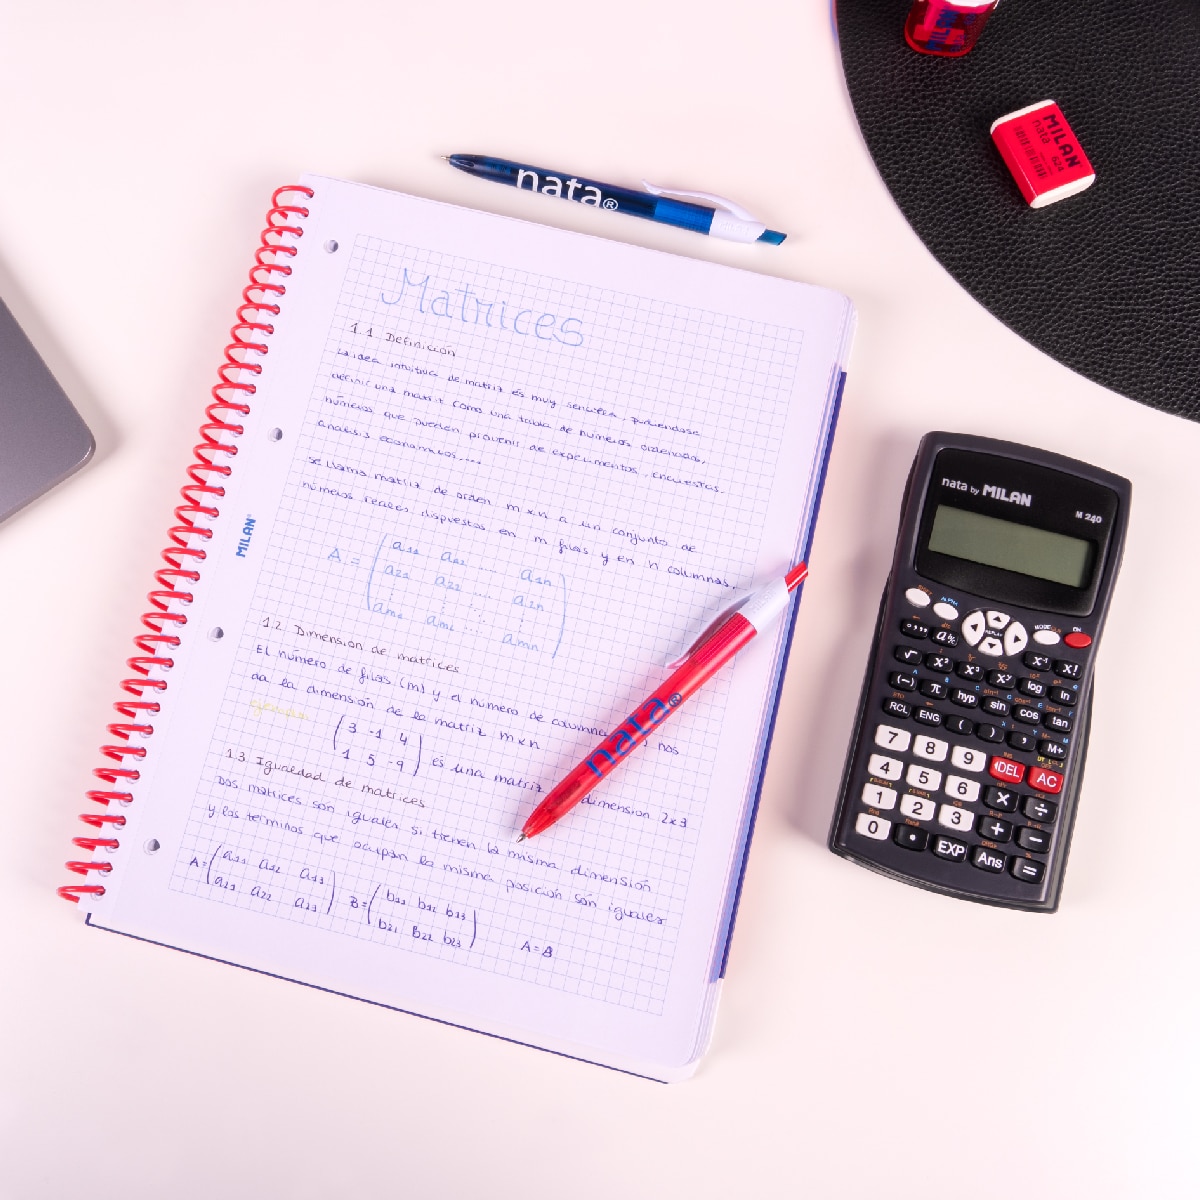 MILAN
MILAN
nata
624
nata®
Matrices
1.1 Definición
La idea intuitiva de matriz es muy sencilla, pudiendose
definir una matriz como una tabla de números ordenados,
números que pueden provenir de experimentos, encuestas,
analisis economicos....
se llama matriz de orden m×n a un conjunto de
números reales dispuestos en m filas y en n columnas.
A = ( a11 a12 .... a1n
a21 a22 .... a2n
⋮ ⋮ ⋱ ⋮
am1 am2 .... amn )
MILAN®
1.2 Dimension de matrices
El número de filas (m) y el número de columnas nos
da la dimensión de la matriz m×n
ejemplo:
( 3 -1 4
1 5 -9 ) es una matriz dimension 2x3
1.3. Igualdad de matrices
Dos matrices son iguales si tienen la misma dimensión
y los terminos que ocupan la misma posicion son iguales
A=( a11 a12 a13
a21 a22 a23 ) B=( b11 b12 b13
b21 b22 b23 ) A=B
nata®
nata by MILAN
M 240
ALPHA
MODE
ON
REPLAY
√ x² x³ xʸ log ln
x⁻¹ x!
(−) π hyp sin cos tan
RCL ENG ( ) , M+
7 8 9 DEL AC
4 5 6 × ÷
1 2 3 + −
0 • EXP Ans =